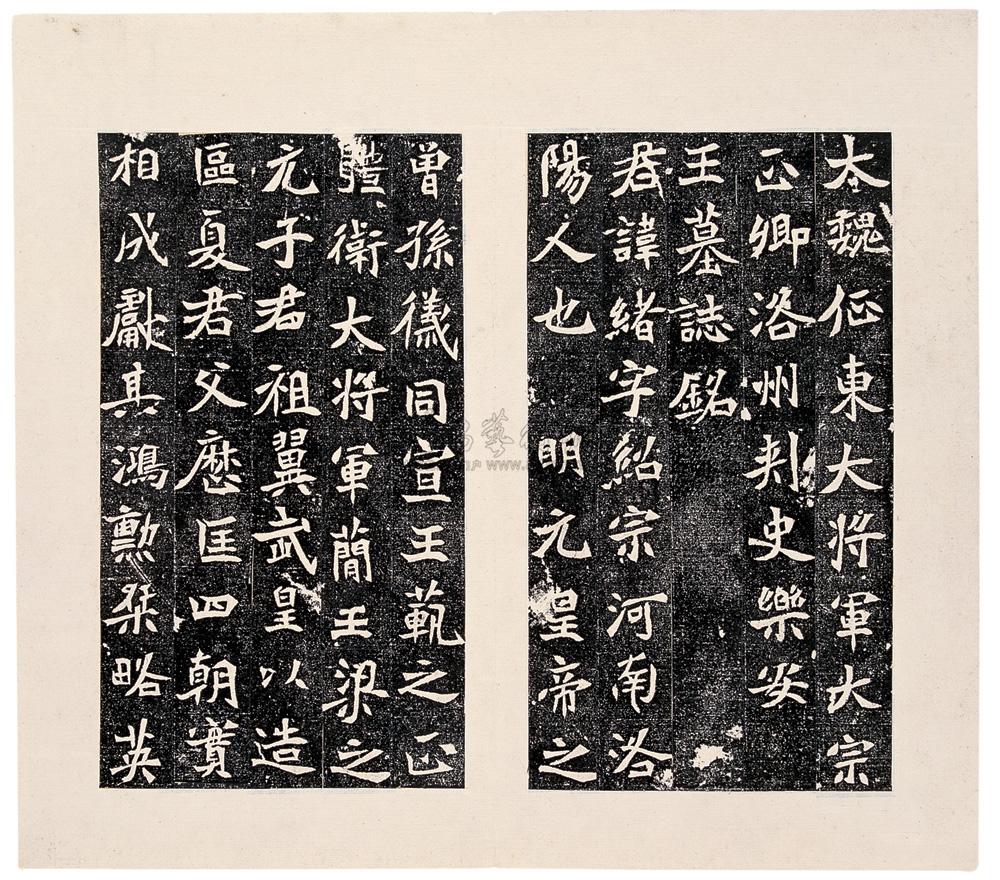 大魏征東大將軍大宗
正卿洛州刾史樂安
王墓誌銘
君諱緒字紹宗河南洛
陽人也 明元皇帝之
曾孫儀同宣王範之正
體衛大將軍簡王梁之
元子君祖翼武皇以造
區夏君父歷匡四朝寶
相成獻其鴻勳栞略英